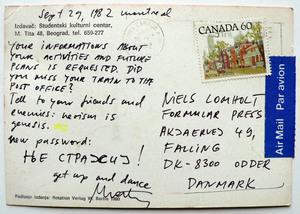 Sept 27, 1982 montreal
Izdavač: Studentski kulturni centar,
M. Tita 48, Beograd, tel. 659-277
Your informations about
your activities and future
plans is requested. Did
you miss your train to the
post office?
Tell to your friends and
enemies: neoism is
genesis.
new password:
get up and dance
CANADA 60
Air Mail Par avion
NIELS LOMHOLT
FORMULAR PRESS
AKDAERVEJ 49,
FALLING
DK-8300 ODDER
DANMARK